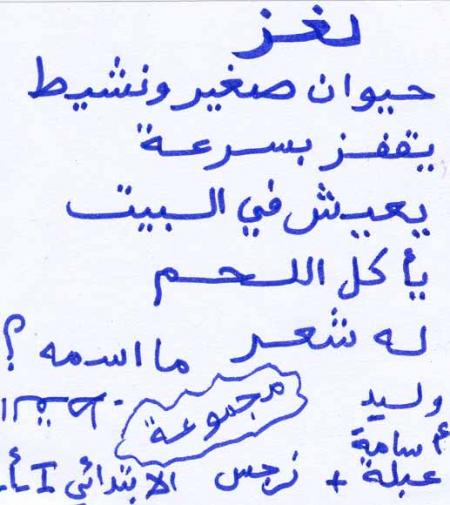 لغز
حيوان صغير ونشيط
يقفز بسرعة
يعيش في البيت
يأكل اللحم
له شعر ما اسمه ؟
وليد
مجموعة
أسامة
عبلة + نرجس الابتدائي I